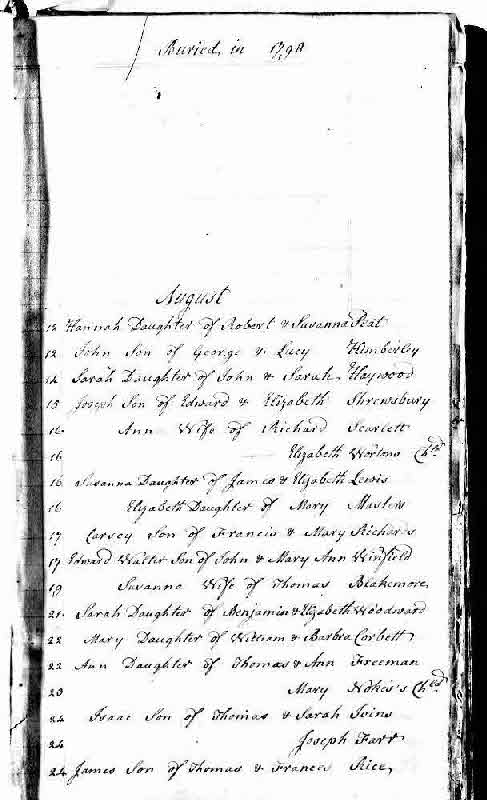 Buried in 1798
August
12 Hannah Daughter of Robert & Susanna Peat
12 John Son of George & Lucy Kimberley
14 Sarah Daughter of John & Sarah Haywood
15 Joseph Son of Edward & Elizabeth Shrewsbury
Ann Wife of Richard Scarlett
16 Elizabeth Wortons Chd
16 Susanna Daughter of James & Elizabeth Lewis
16 Elizabeth Daughter of Mary Masters
17 Carsey Son of Francis & Mary Richards
17 Edward Walter Son of John & Mary Ann Winfield
19 Susanna Wife of Thomas Blakemore
21 Sarah Daughter of Benjamin & Elizabeth Woodward
22 Mary Daughter of William & Barbra Corbett
22 Ann Daughter of Thomas & Ann Freeman
23 Mary Nokes's Chd
24 Isaac Son of Thomas & Sarah Ivins
24 Joseph Farr
24 James Son of Thomas & Frances Rice